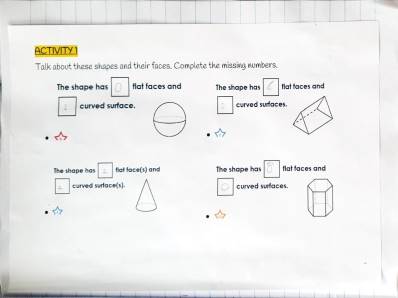 ACTIVITY 1
Talk about these shapes and their faces. Complete the missing numbers.
The shape has 0 flat faces and
curved surface.
The shape has flat faces and
curved surfaces.
The shape has flat face(s) and
curved surface(s).
The shape has 8 flat faces and
0 curved surfaces.